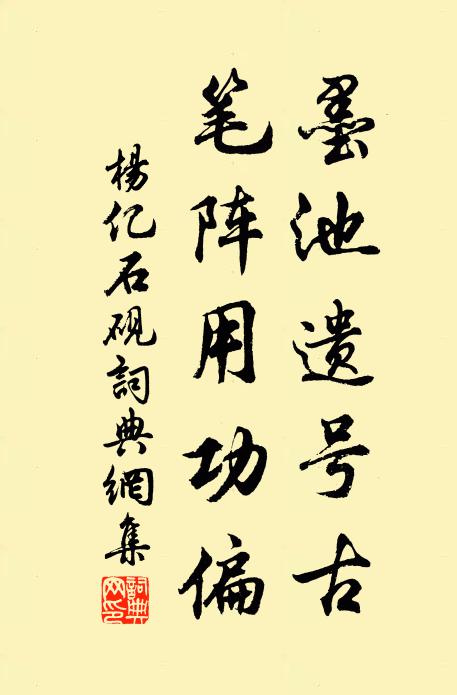 墨池遗号古
笔阵用功偏
楊亿石砚詞典網集
詞典网印